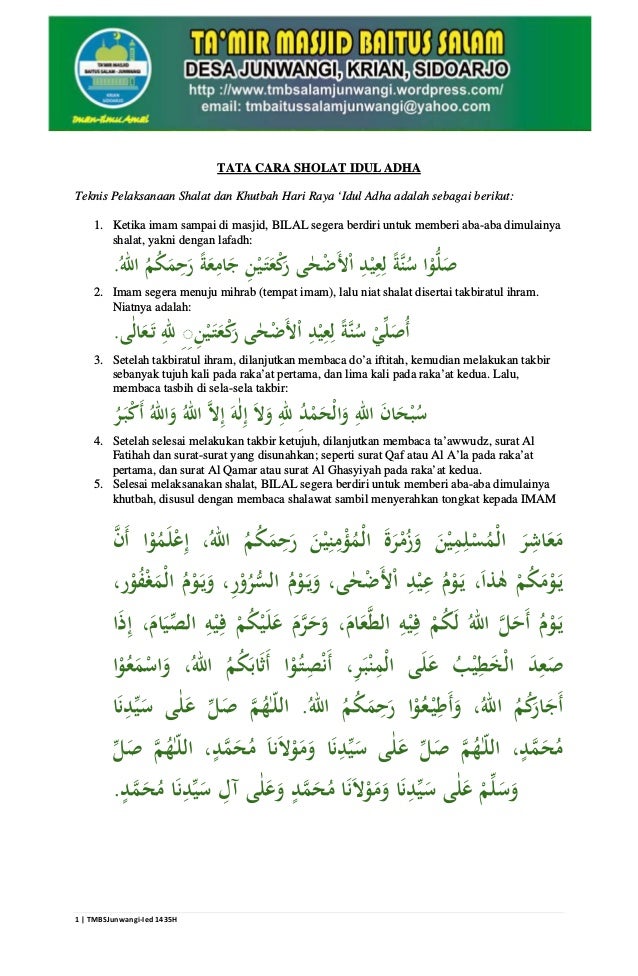 TA'MIR MASJID
BAITUS SALAM - JUNWANGI
KRIAN
SIDOARJO
Iman-Ilmu-Amal
TA'MIR MASJID BAITUS SALAM
DESA JUNWANGI, KRIAN, SIDOARJO
http ://www.tmbsalamjunwangi.wordpress.com/
email: tmbaitussalamjunwangi@yahoo.com
TATA CARA SHOLAT IDUL ADHA
Teknis Pelaksanaan Shalat dan Khutbah Hari Raya ‘Idul Adha adalah sebagai berikut:
1. Ketika imam sampai di masjid, BILAL segera berdiri untuk memberi aba-aba dimulainya
shalat, yakni dengan lafadh:
صَلُّوْا سُنَّةً لِعِيْدِ اْلأَضْحٰى رَكْعَتَيْنِ جَامِعَةً رَحِمَكُمُ اللهُ.
2. Imam segera menuju mihrab (tempat imam), lalu niat shalat disertai takbiratul ihram.
Niatnya adalah:
أُصَلِّيْ سُنَّةً لِعِيْدِ اْلأَضْحٰى رَكْعَتَيْنِ لِلهِ تَعَالٰى.
3. Setelah takbiratul ihram, dilanjutkan membaca do’a iftitah, kemudian melakukan takbir
sebanyak tujuh kali pada raka’at pertama, dan lima kali pada raka’at kedua. Lalu,
membaca tasbih di sela-sela takbir:
سُبْحَانَ اللهِ وَالْحَمْدُ لِلهِ وَلاَ إِلٰهَ إِلاَّ اللهُ وَاللهُ أَكْبَرُ
4. Setelah selesai melakukan takbir ketujuh, dilanjutkan membaca ta’awwudz, surat Al
Fatihah dan surat-surat yang disunahkan; seperti surat Qaf atau Al A’la pada raka’at
pertama, dan surat Al Qamar atau surat Al Ghasyiyah pada raka’at kedua.
5. Selesai melaksanakan shalat, BILAL segera berdiri untuk memberi aba-aba dimulainya
khutbah, disusul dengan membaca shalawat sambil menyerahkan tongkat kepada IMAM
مَعَاشِرَ الْمُسْلِمِيْنَ وَزُمْرَةَ الْمُؤْمِنِيْنَ رَحِمَكُمُ اللهُ، إِعْلَمُوْا أَنَّ
يَوْمَكُمْ هٰذَا، يَوْمُ عِيْدِ اْلأَضْحٰى، وَيَوْمُ السُّرُوْرِ، وَيَوْمُ الْمَغْفُوْرِ،
يَوْمُ أَحَلَّ اللهُ لَكُمْ فِيْهِ الطَّعَامَ، وَحَرَّمَ عَلَيْكُمْ فِيْهِ الصِّيَامَ، إِذَا
صَعِدَ الْخَطِيْبُ عَلَى الْمِنْبَرِ، أَنْصِتُوْا أَثَابَكُمُ اللهُ، وَاسْمَعُوْا
أَجَارَكُمُ اللهُ، وَأَطِيْعُوْا رَحِمَكُمُ اللهُ. اللّٰهُمَّ صَلِّ عَلٰى سَيِّدِنَا
مُحَمَّدٍ، اللّٰهُمَّ صَلِّ عَلٰى سَيِّدِنَا وَمَوْلاَنَا مُحَمَّدٍ، اللّٰهُمَّ صَلِّ
وَسَلِّمْ عَلٰى سَيِّدِنَا وَمَوْلاَنَا مُحَمَّدٍ وَعَلٰى آلِ سَيِّدِنَا مُحَمَّدٍ.
1 | TMBSJunwangi-Ied 1435H